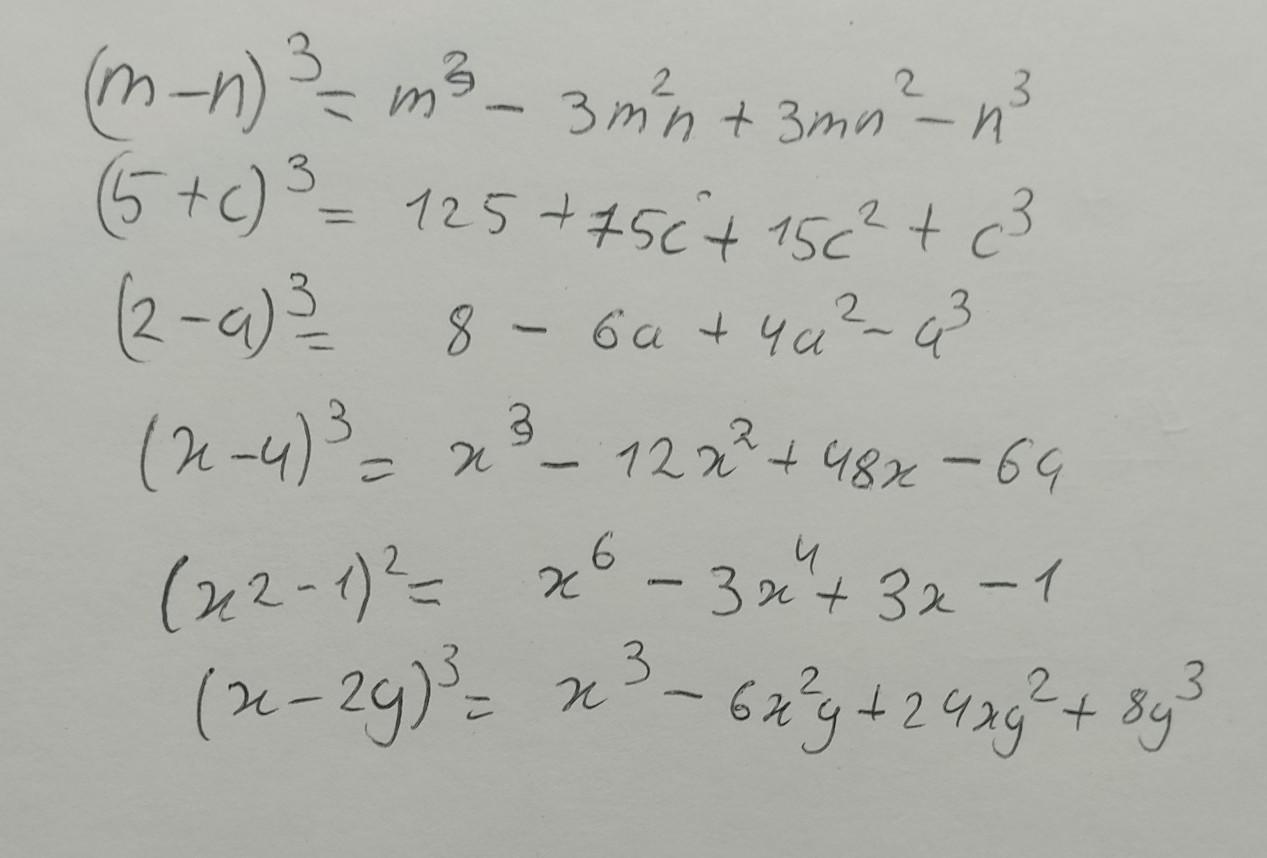 (m-n)³ = m³ - 3m²n + 3mn² - n³
(5+c)³ = 125 + 75c + 15c² + c³
(2-a)³ = 8 - 6a + 4a² - a³
(x-4)³ = x³ - 12x² + 48x - 64
(x2-1)² = x⁶ - 3x⁴ + 3x - 1
(x-2y)³ = x³ - 6x²y + 24xy² + 8y³